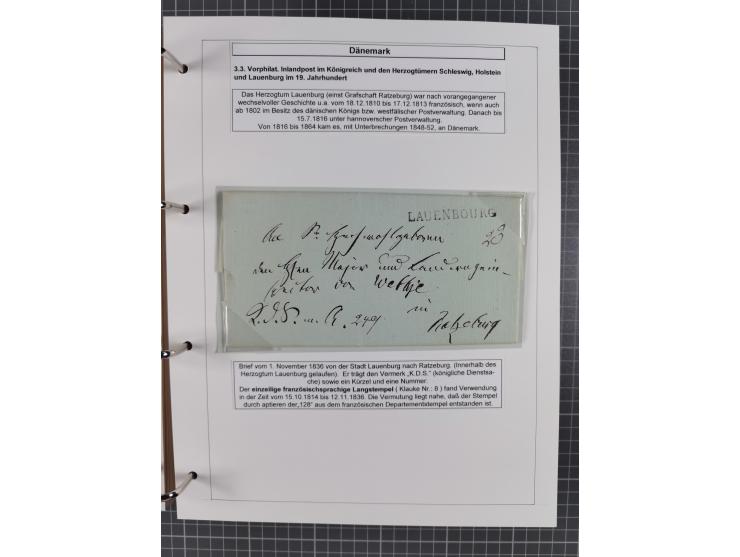 Dänemark
3.3. Vorphilat. Inlandpost im Königreich und den Herzogtümern Schleswig, Holstein
und Lauenburg im 19. Jahrhundert
Das Herzogtum Lauenburg (einst Grafschaft Ratzeburg) war nach vorangegangener
wechselvoller Geschichte u.a. vom 18.12.1810 bis 17.12.1813 französisch, wenn auch
ab 1802 im Besitz des dänischen Königs bzw. westfälischer Postverwaltung. Danach bis
15.7.1816 unter hannoverscher Postverwaltung.
Von 1816 bis 1864 kam es, mit Unterbrechungen 1848-52, an Dänemark.
LAUENBOURG
An Sr. Hochwohlgeboren
den Major und
von
in
Ratzeburg
Brief vom 1. November 1836 von der Stadt Lauenburg nach Ratzeburg. (Innerhalb des
Herzogtum Lauenburg gelaufen). Er trägt den Vermerk „K.D.S." (königliche Dienstsa-
che) sowie ein Kürzel und eine Nummer.
Der einzeilige französischsprachige Langstempel ( Klauke Nr.: 8 ) fand Verwendung
in der Zeit vom 15.10.1814 bis 12.11.1836. Die Vermutung liegt nahe, daß der Stempel
durch aptieren der„128" aus dem französischen Departementstempel entstanden ist.